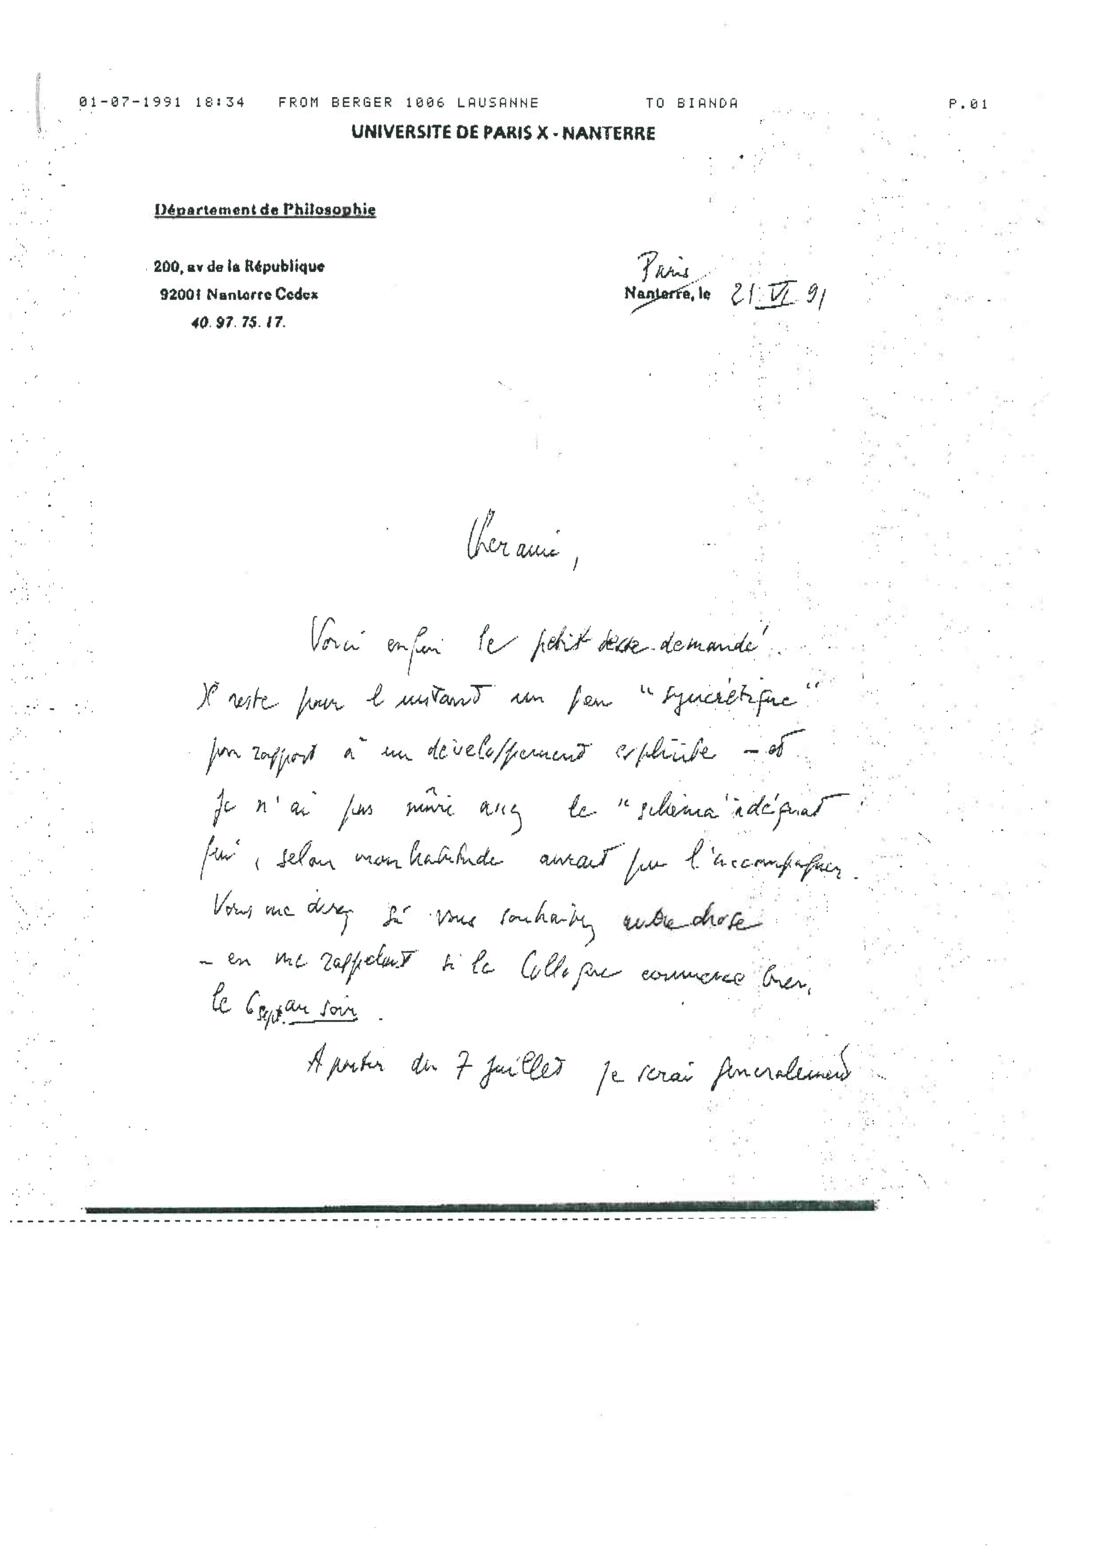 01-07-1991 18:34 FROM BERGER 1006 LAUSANNE TO BIANDA P.01
UNIVERSITE DE PARIS X - NANTERRE
Département de Philosophie
200, av de la République
92001 Nanterre Cedex
40.97.75.17.
Paris
Nanterre, le 21 VI 91
Cher ami,
Voici enfin le petit texte demandé.
Il reste pour l'instant un peu "syncrétique"
par rapport à un développement explicite – et
je n'ai pas mûri assez le "schéma" adéquat
qui, selon mon habitude aurait pu l'accompagner.
Vous me direz si vous souhaitez autre chose
– en me rappelant si le Colloque commence bien,
le 6 sept. au soir.
A partir du 7 juillet je serai généralement